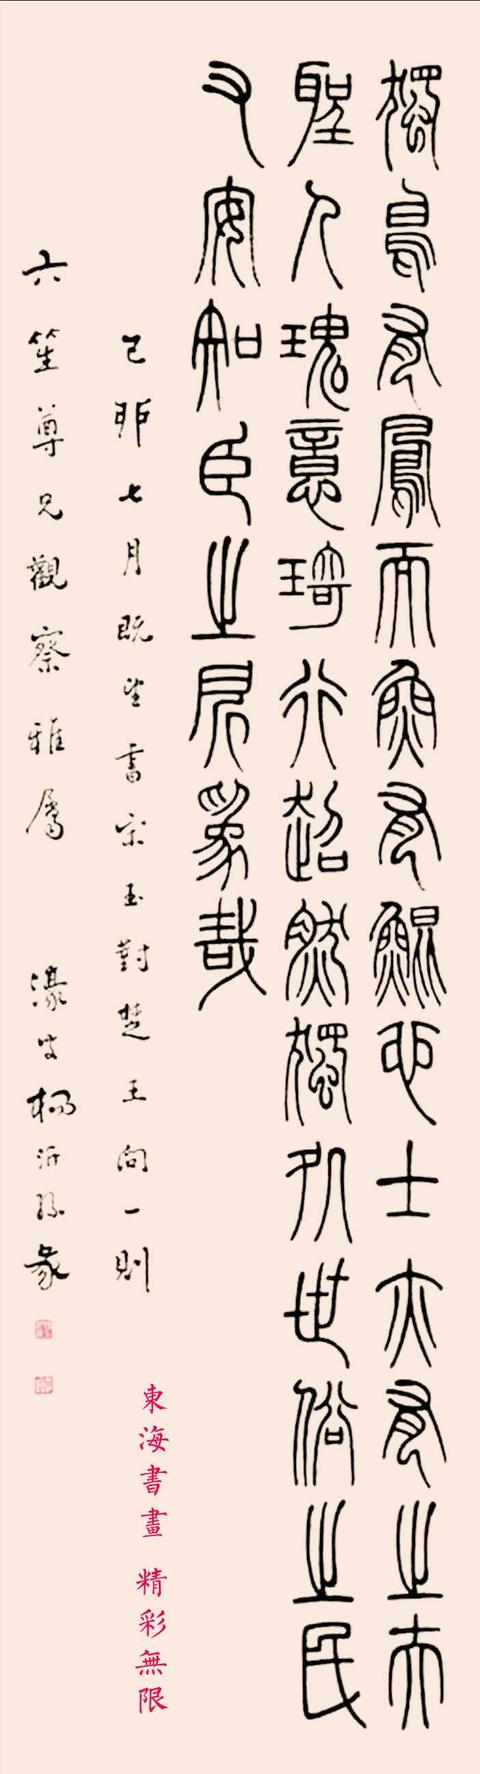 獨鳥有鳳而魚有鯤也士亦有之夫
聖人瑰意琦行超然獨処世俗之民
又安知臣之所爲哉
己卯七月既望書宋玉對楚王問一則
六笙尊兄觀察雅屬 濠叟楊沂孫篆
東海書畫 精彩無限